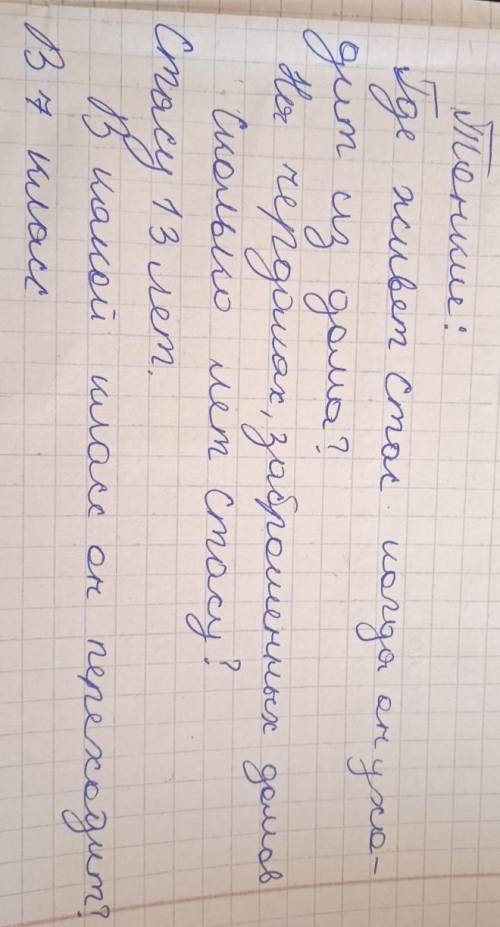 Тонкие:
Где живет Стас когда он ухо-
дит из дома?
На чердаках, заброшенных домов
Сколько лет Стасу?
Стасу 13 лет.
В какой класс он переходит?
В 7 класс